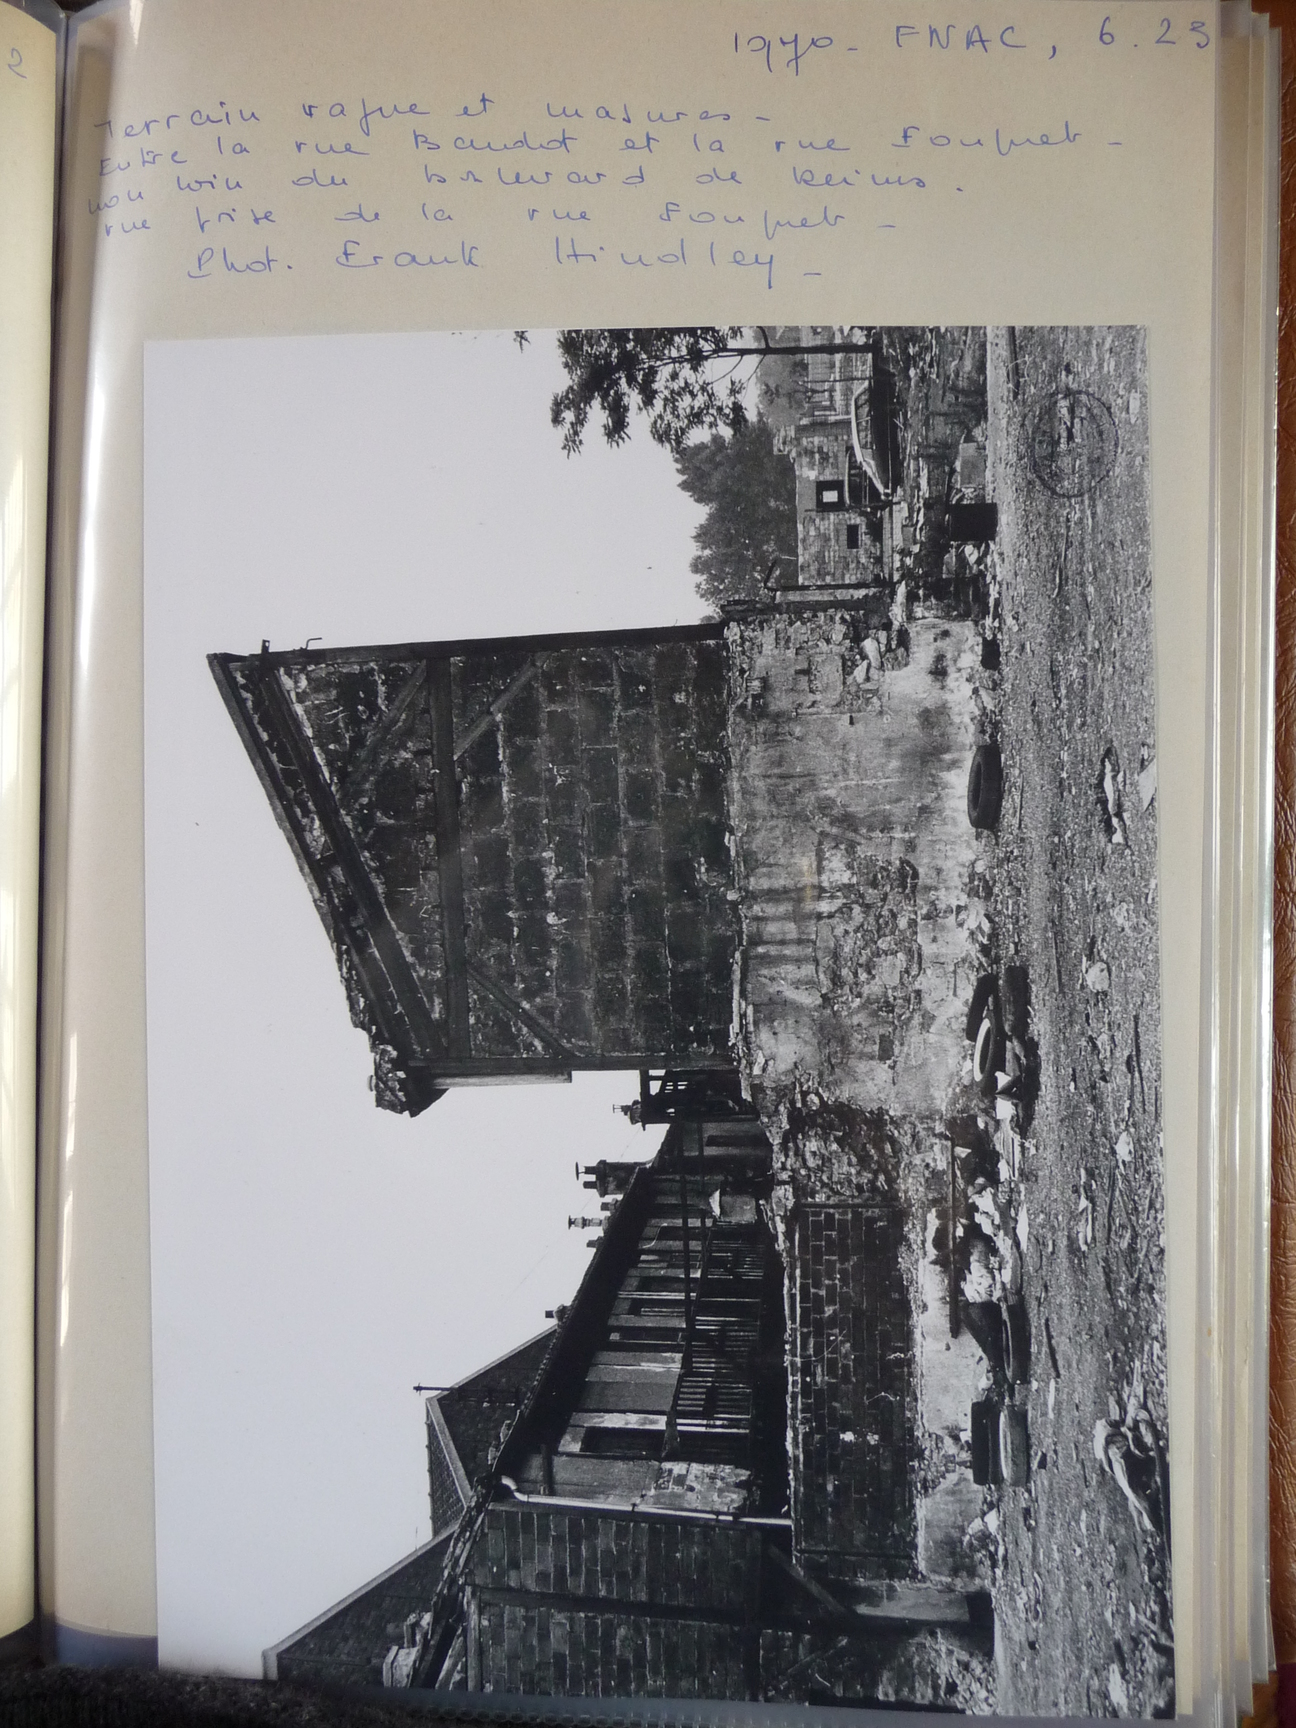 2
1970 - FNAC, 6.23
Terrain vague et masures -
Entre la rue Baudot et la rue Fouquet -
non loin du boulevard de Reims.
vue prise de la rue Fouquet -
Phot. Frank Hindley -